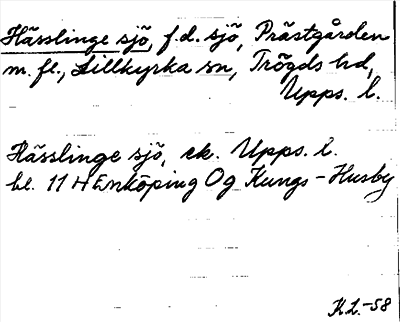 Hässlinge sjö, f.d. sjö, Prästgården
m. fl., Lillkyrka sn, Trögds hd,
Upps. l.
Hässlinge sjö, ek. Upps. l.
bl. 11 H Enköping Og Kungs-Husby
K.L.-58